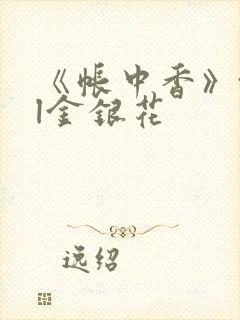 《帐中香》
|金银花
逸绍